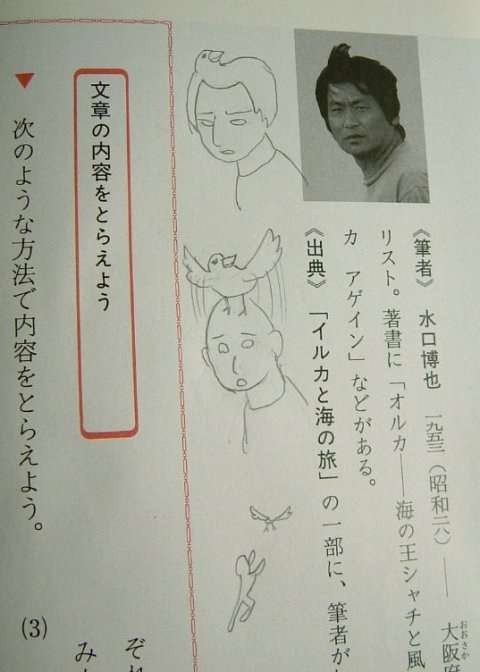 《筆者》 水口博也 一九五三(昭和二八)―― 大阪府
リスト。著書に「オルカ――海の王シャチと風
カ アゲイン」などがある。
《出典》 「イルカと海の旅」の一部に、筆者が
文章の内容をとらえよう
▼ 次のような方法で内容をとらえよう。
(3)
おおさか